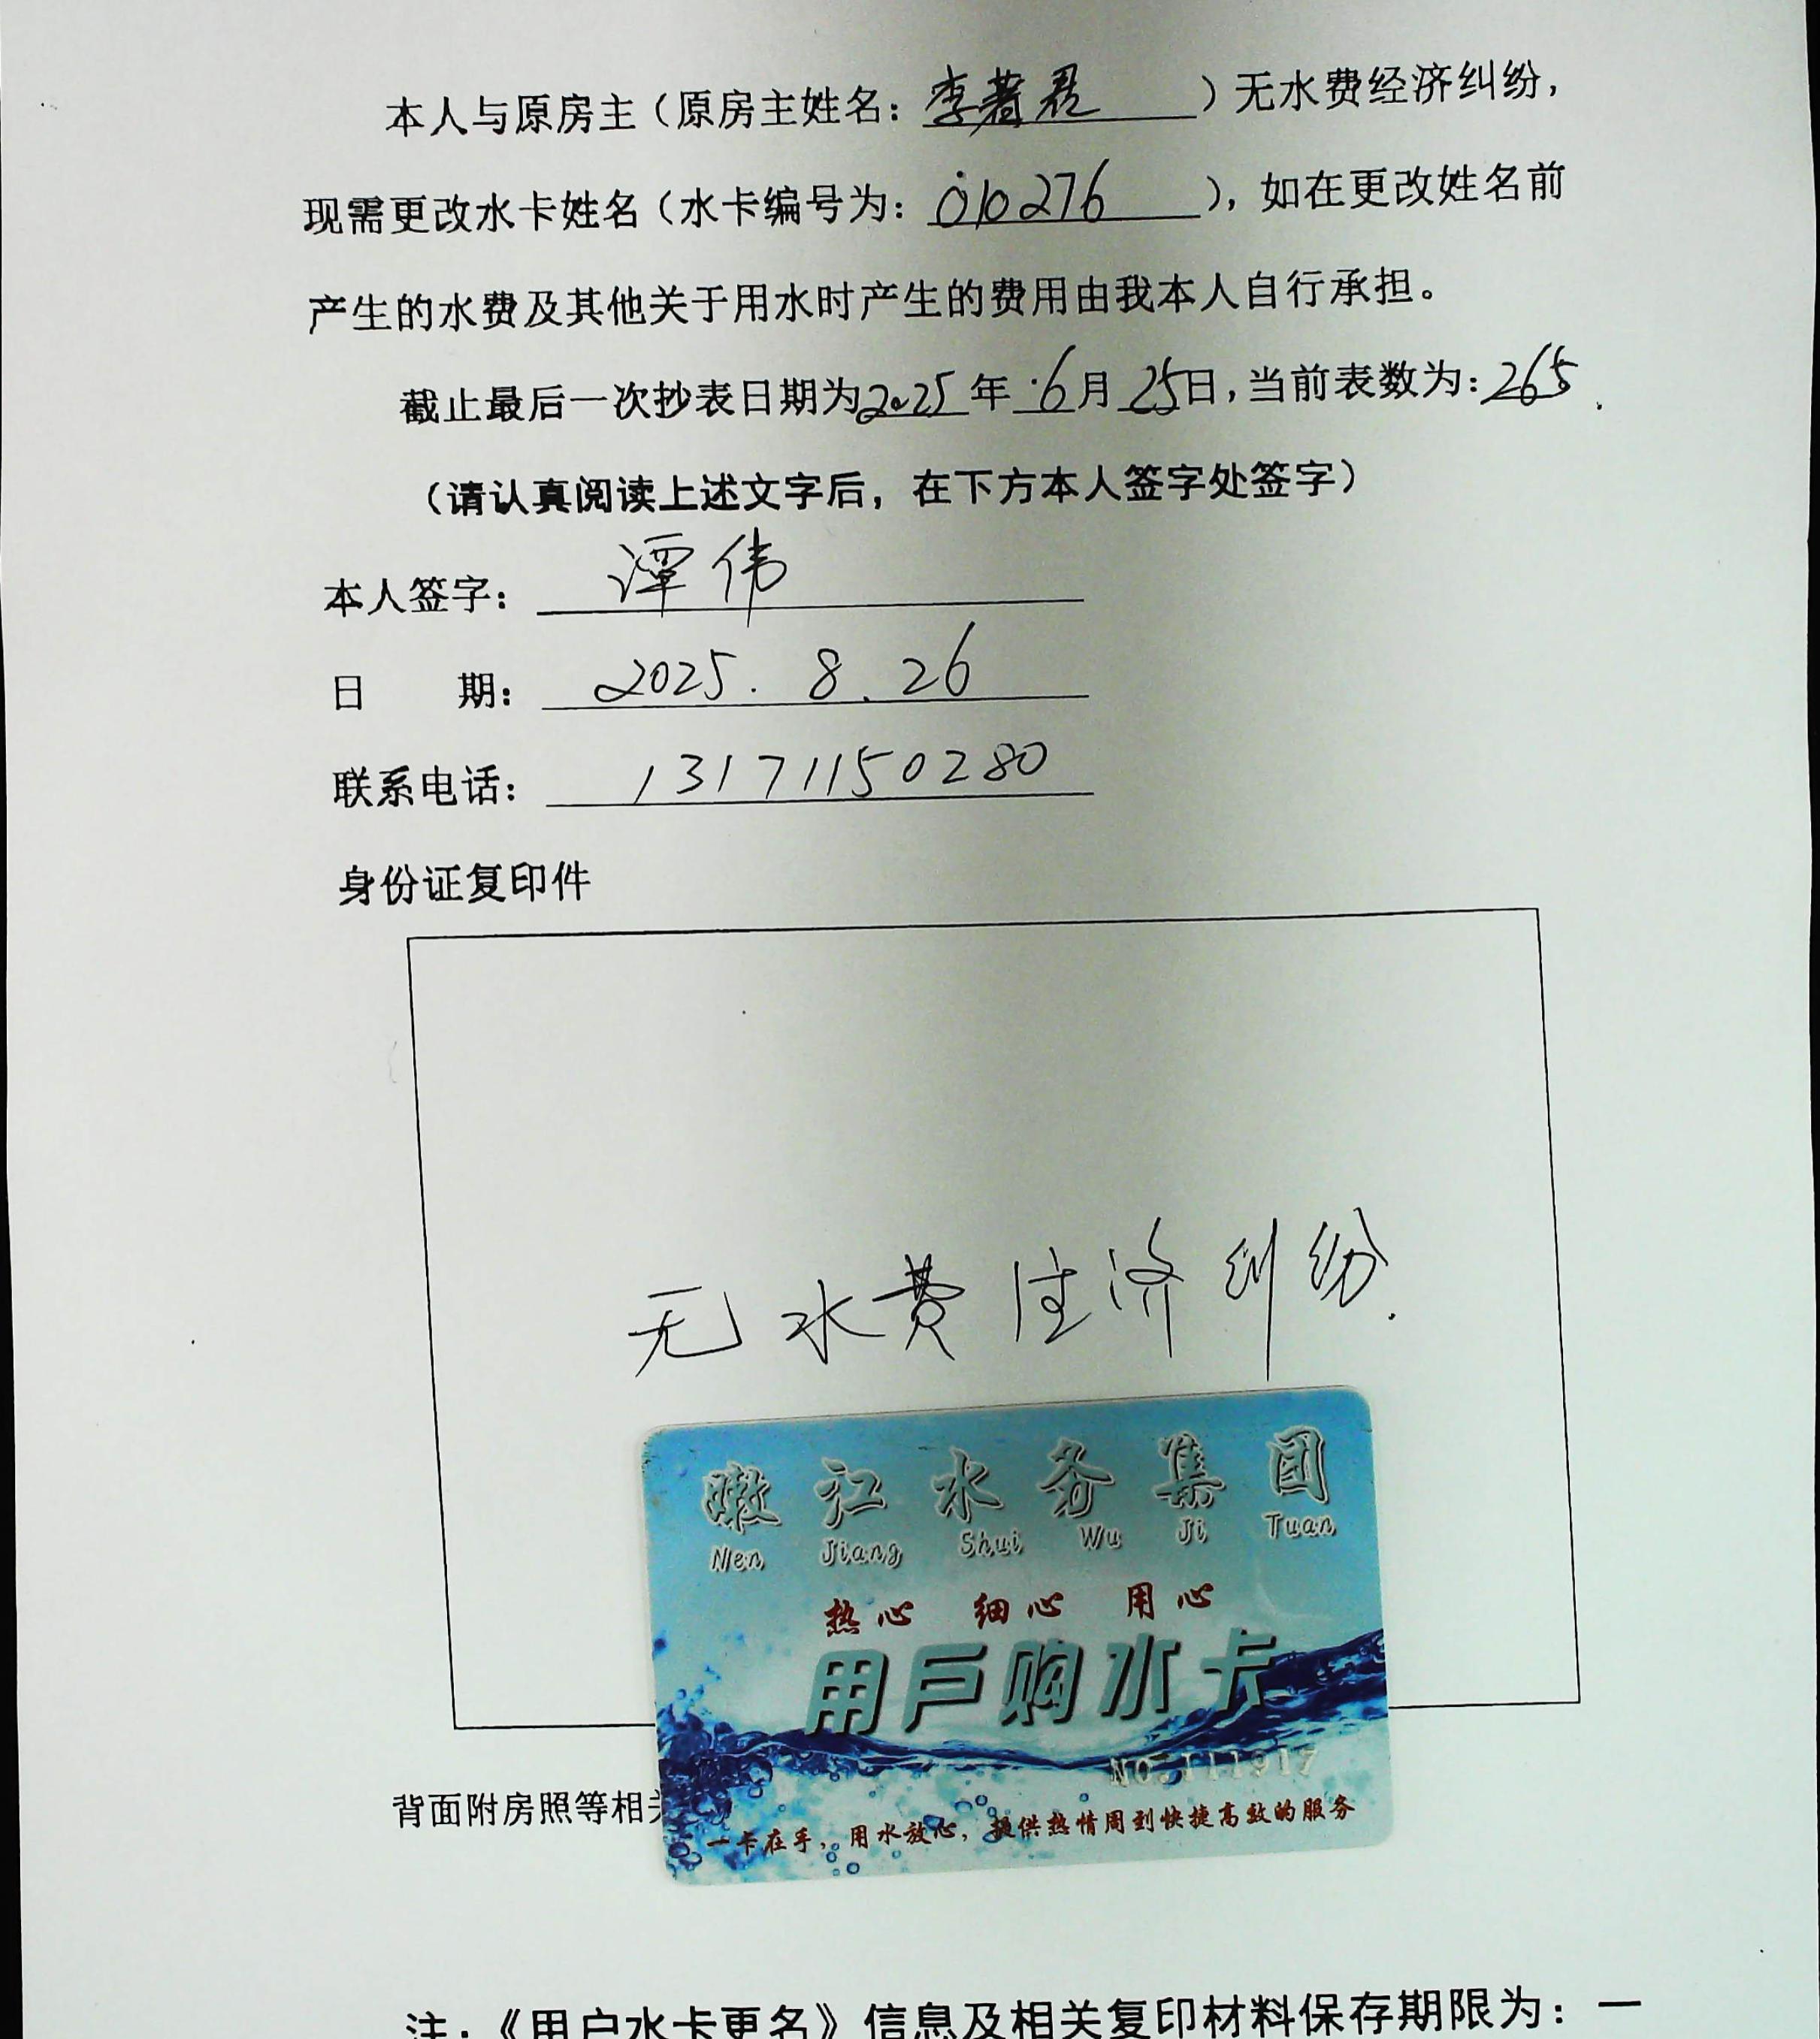 本人与原房主（原房主姓名：李著君）无水费经济纠纷，
现需更改水卡姓名（水卡编号为：010276），如在更改姓名前
产生的水费及其他关于用水时产生的费用由我本人自行承担。
截止最后一次抄表日期为2025年6月25日，当前表数为：265.
（请认真阅读上述文字后，在下方本人签字处签字）
本人签字：谭伟
日 期：2025.8.26
联系电话：13171150280
身份证复印件
无水费经济纠纷.
嫩江水务集团
Nen Jiang Shui Wu Ji Tuan
热心 细心 用心
用户购水卡
NO:111917
背面附房照等相关
一卡在手，用水放心，提供热情周到快捷高效的服务
注：《用户水卡更名》信息及相关复印材料保存期限为：一